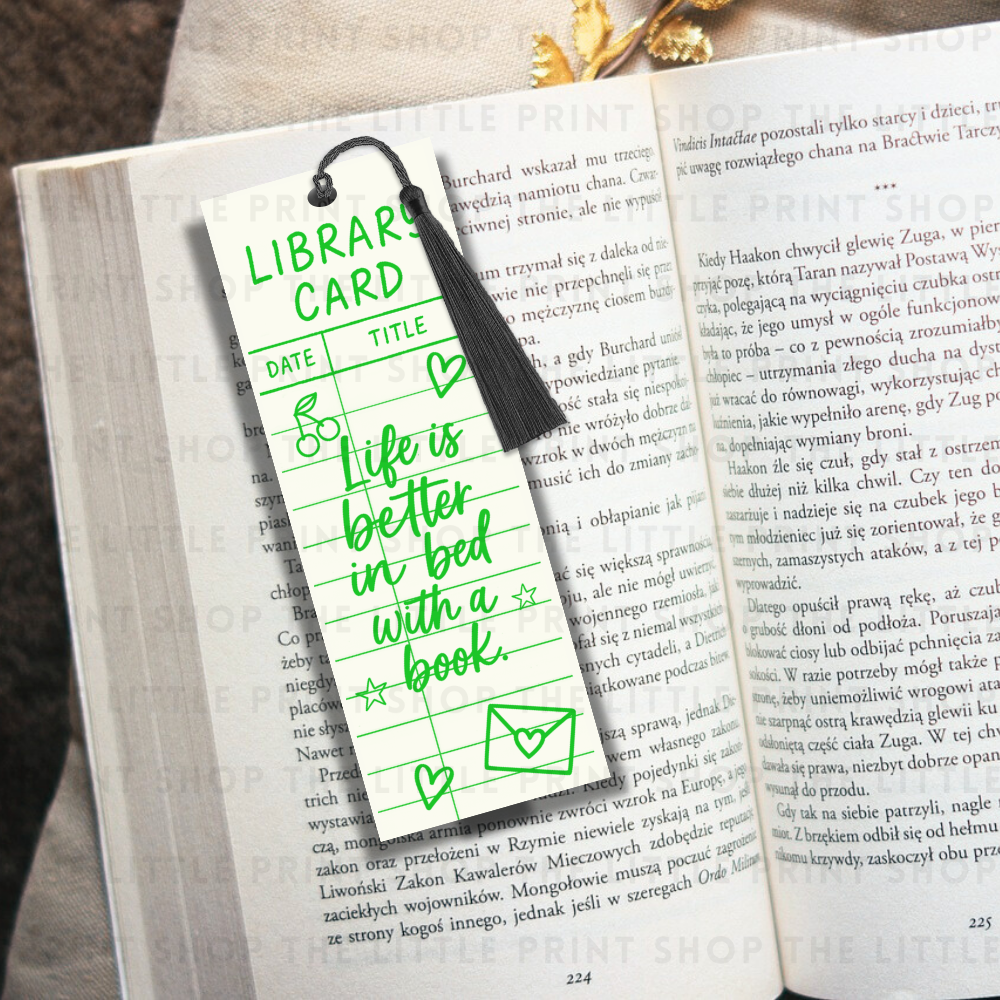 THE LITTLE PRINT SHOP
LIBRARY
CARD
DATE TITLE
Life is
better
in bed
with a
book.
Burchard wskazał mu trzeciego.
um trzymał się z daleka od nie-
wie nie przepchnęli się prze-
a gdy Burchard uniósł
ypowiedziane pytanie.
ość stała się niespokoj-
nie wróżyło dobrze dal-
wzrok w dwóch mężczyzn
musić ich do zmiany zacho-
nią i obłapianie jak pijani
ać się większą sprawnością
oju, ale nie mógł uwierzyć
wojennego rzemiosła, jak
fał się z niemal wszystkich
snych cytadeli, a Dietrich
iątkowane podczas bitew
szą sprawą, jednak Die-
wem własnego zakonu.
Kiedy pojedynki się zakoń-
wystawia
armia ponownie zwróci wzrok na Europę, a jego
zakon oraz przełożeni w Rzymie niewiele zyskają na tym, jeśli
Liwoński Zakon Kawalerów Mieczowych zdobędzie reputację
zaciekłych wojowników. Mongołowie muszą poczuć zagrożenie
ze strony kogoś innego, jednak jeśli w szeregach Ordo Militum
224
Vindicis Intactae pozostali tylko starcy i dzieci, tru
pić uwagę rozwiązłego chana na Bractwie Tarczy
***
Kiedy Haakon chwycił glewię Zuga, w pier
przyjąć pozę, którą Taran nazywał Postawą Wy
czyka, polegającą na wyciągnięciu czubka ostr
kładając, że jego umysł w ogóle funkcjonow
była to próba – co z pewnością zrozumiałby
chłopiec – utrzymania złego ducha na dyst
już wracać do równowagi, wykorzystując ch
łużnienia, jakie wypełniło arenę, gdy Zug po
na, dopełniając wymiany broni.
Haakon źle się czuł, gdy stał z ostrzem
siebie dłużej niż kilka chwil. Czy ten do
zaszarżuje i nadzieje się na czubek jego b
tym młodzieniec już się zorientował, że g
szernych, zamaszystych ataków, a z tej p
wyprowadzić.
Dlatego opuścił prawą rękę, aż czub
o grubość dłoni od podłoża. Poruszają
blokować ciosy lub odbijać pchnięcia za
sokości. W razie potrzeby mógł także p
stronę, żeby uniemożliwić wrogowi ata
nie szarpnąć ostrą krawędzią glewii ku
odsłoniętą część ciała Zuga. W tej chw
dawała się prawa, niezbyt dobrze opan
wysunął do przodu.
Gdy tak na siebie patrzyli, nagle
miot. Z brzękiem odbił się od hełmu
nikomu krzywdy, zaskoczył obu prze
225